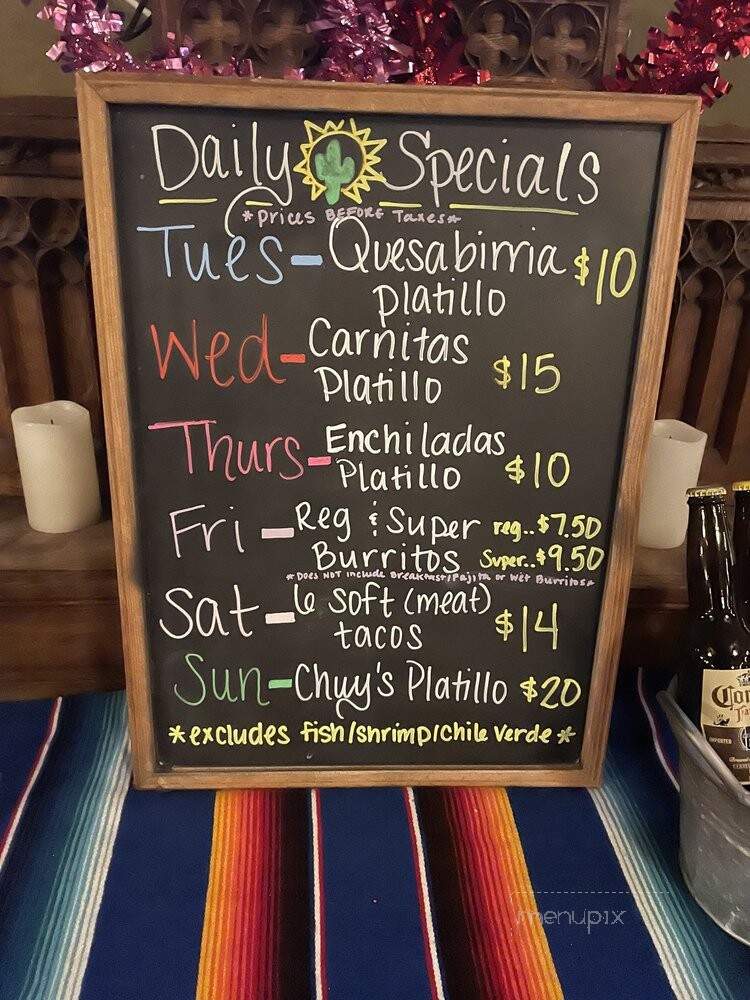 Daily Specials
*Prices BEFORE Taxes*
Tues - Quesabirria $10
platillo
Wed - Carnitas
Platillo $15
Thurs - Enchiladas
Platillo $10
Fri - Reg & Super reg..$7.50
Burritos Super..$9.50
*Does NOT include Breakfast/Fajita or Wet Burritos*
Sat - 6 soft (meat)
tacos $14
Sun - Chuy's Platillo $20
*excludes fish/shrimp/chile verde*
menupix